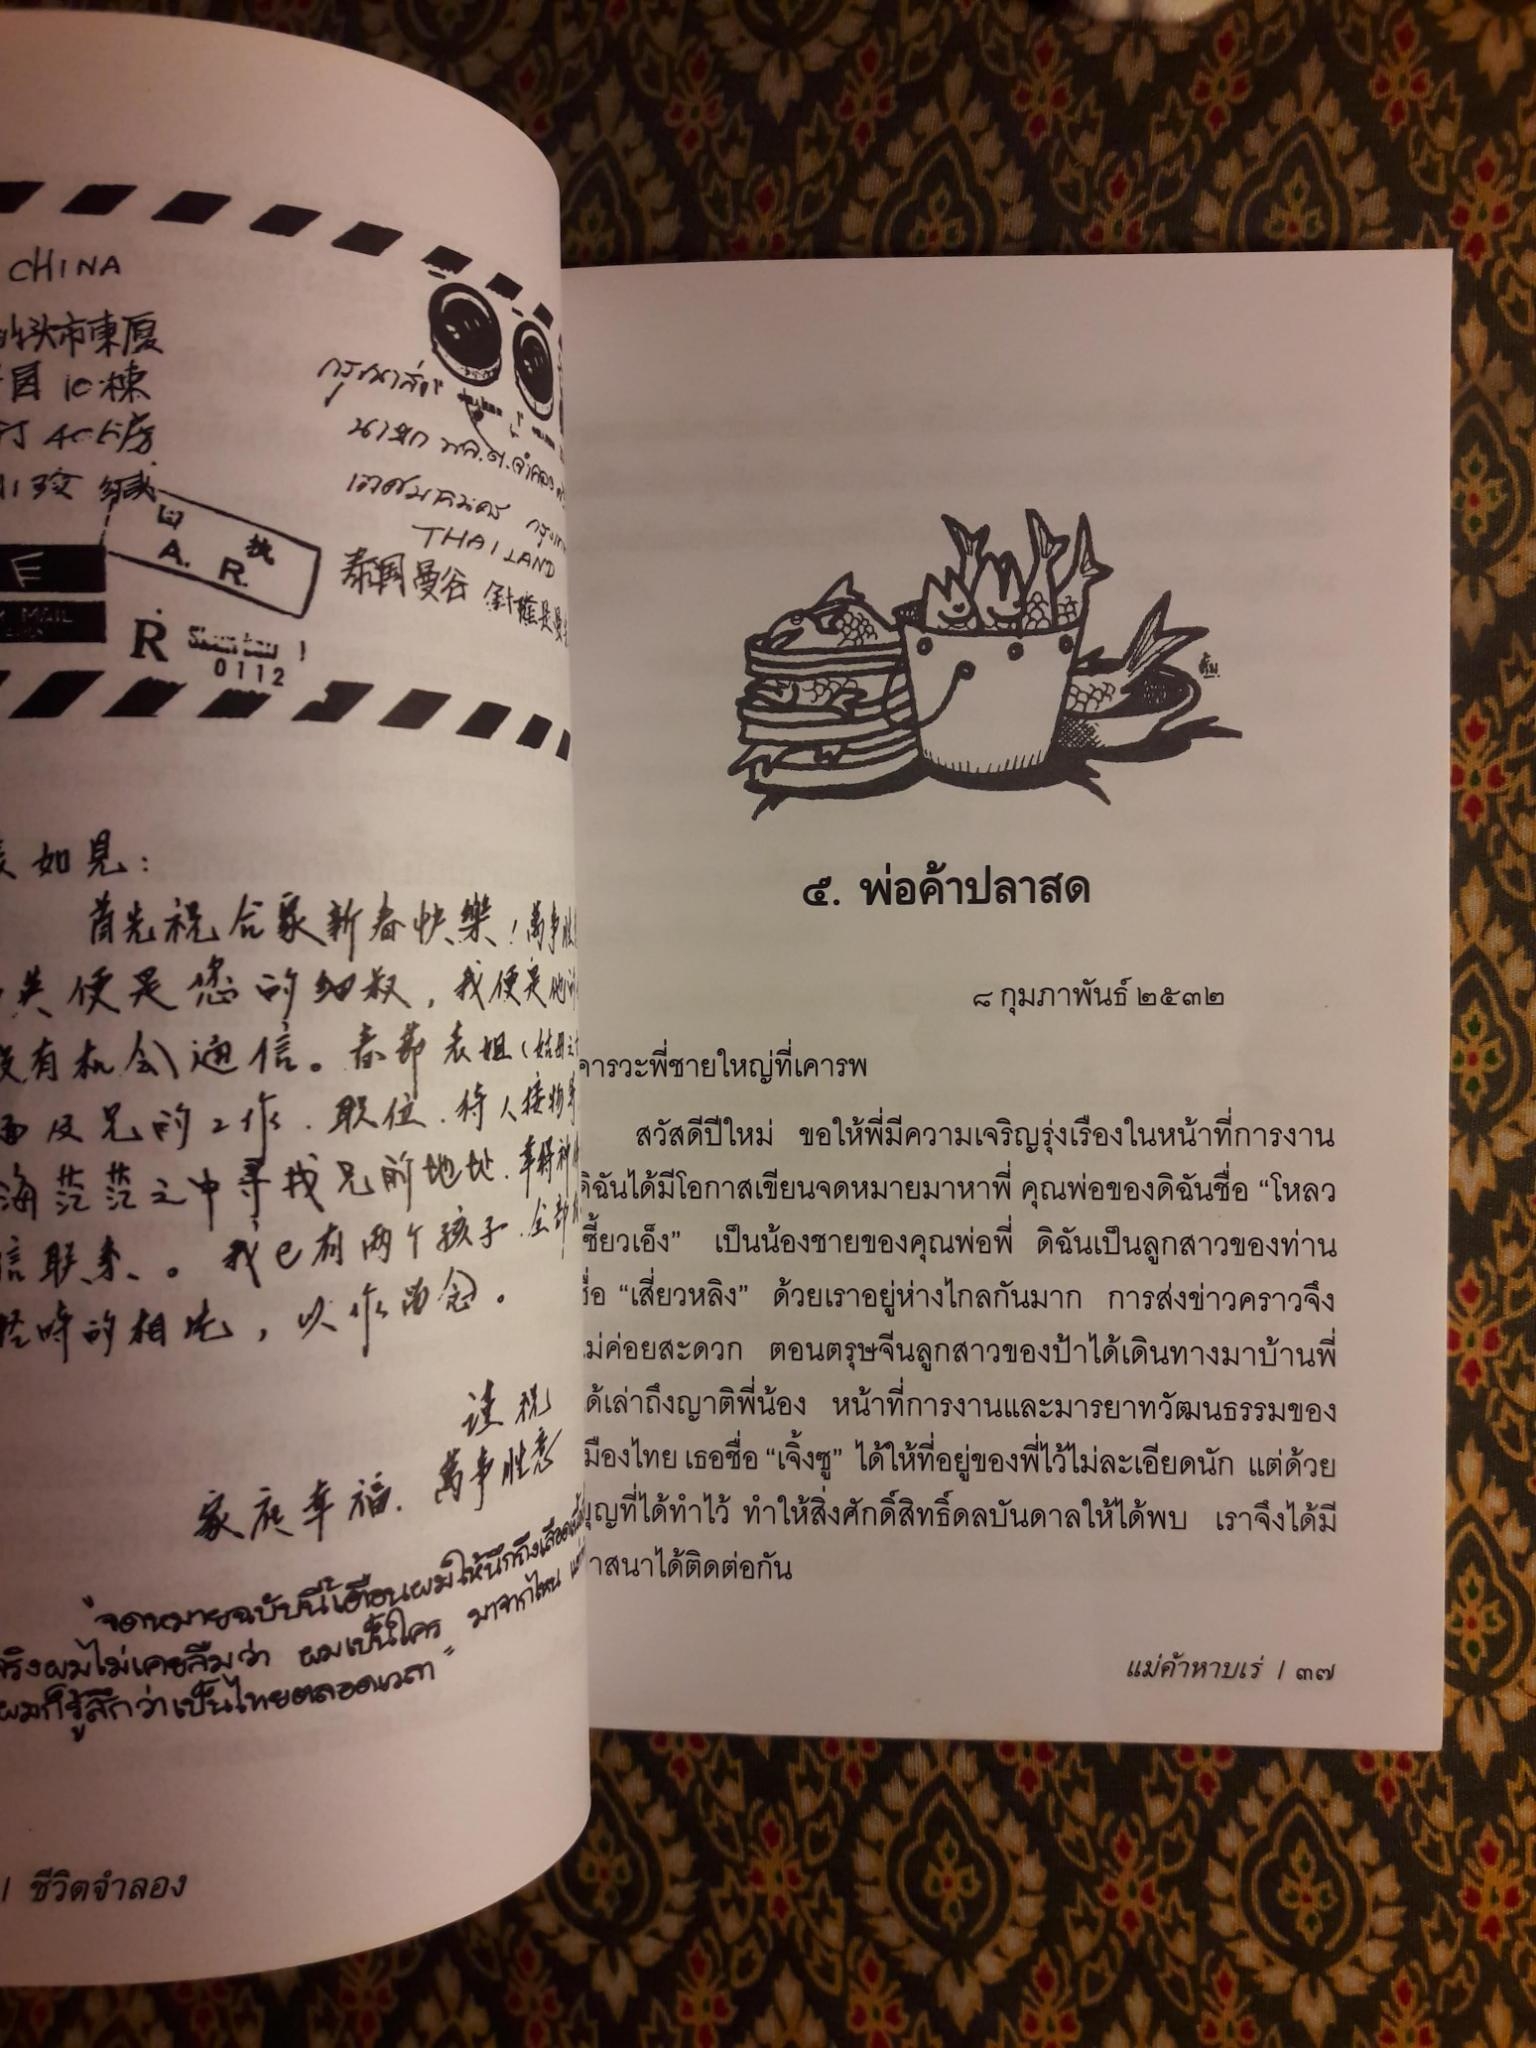 CHINA
汕头市東厦
10棟
房
缄
กรุณาส่ง
นายก พล.ต.จำลอง
เทศมนตรี
THAILAND
泰国曼谷
A. R.
MAIL
R
0112
如見：
首先祝合家新春快樂！萬事胜
英便是您的细叔，我便是他的
没有机会通信。春節表姐(姑母之
及兄的工作．职位．待人接物
海茫茫之中寻找兄的地址．幸得神
信联系。我已有两个孩子．全部
时的相片，以作留念。
谨祝
家庭幸福．萬事胜意
"จดหมายฉบับนี้เตือนผมให้นึกถึงเสมอ
จริงผมไม่เคยลืมว่า ผมเป็นใคร มาจากไหน
ผมก็รู้สึกว่าเป็นไทยตลอดเวลา"
| ชีวิตจำลอง
๕. พ่อค้าปลาสด
๘ กุมภาพันธ์ ๒๕๓๒
คารวะพี่ชายใหญ่ที่เคารพ
สวัสดีปีใหม่ ขอให้พี่มีความเจริญรุ่งเรืองในหน้าที่การงาน
ดิฉันได้มีโอกาสเขียนจดหมายมาหาพี่ คุณพ่อของดิฉันชื่อ “โหลว
ซี้ยวเอ็ง” เป็นน้องชายของคุณพ่อพี่ ดิฉันเป็นลูกสาวของท่าน
ชื่อ “เสี่ยวหลิง” ด้วยเราอยู่ห่างไกลกันมาก การส่งข่าวคราวจึง
ไม่ค่อยสะดวก ตอนตรุษจีนลูกสาวของป้าได้เดินทางมาบ้านพี่
ได้เล่าถึงญาติพี่น้อง หน้าที่การงานและมารยาทวัฒนธรรมของ
เมืองไทย เธอชื่อ “เจิ้งซู” ได้ให้ที่อยู่ของพี่ไว้ไม่ละเอียดนัก แต่ด้วย
บุญที่ได้ทำไว้ ทำให้สิ่งศักดิ์สิทธิ์ดลบันดาลให้ได้พบ เราจึงได้มี
วาสนาได้ติดต่อกัน
แม่ค้าหาบเร่ | ๓๗